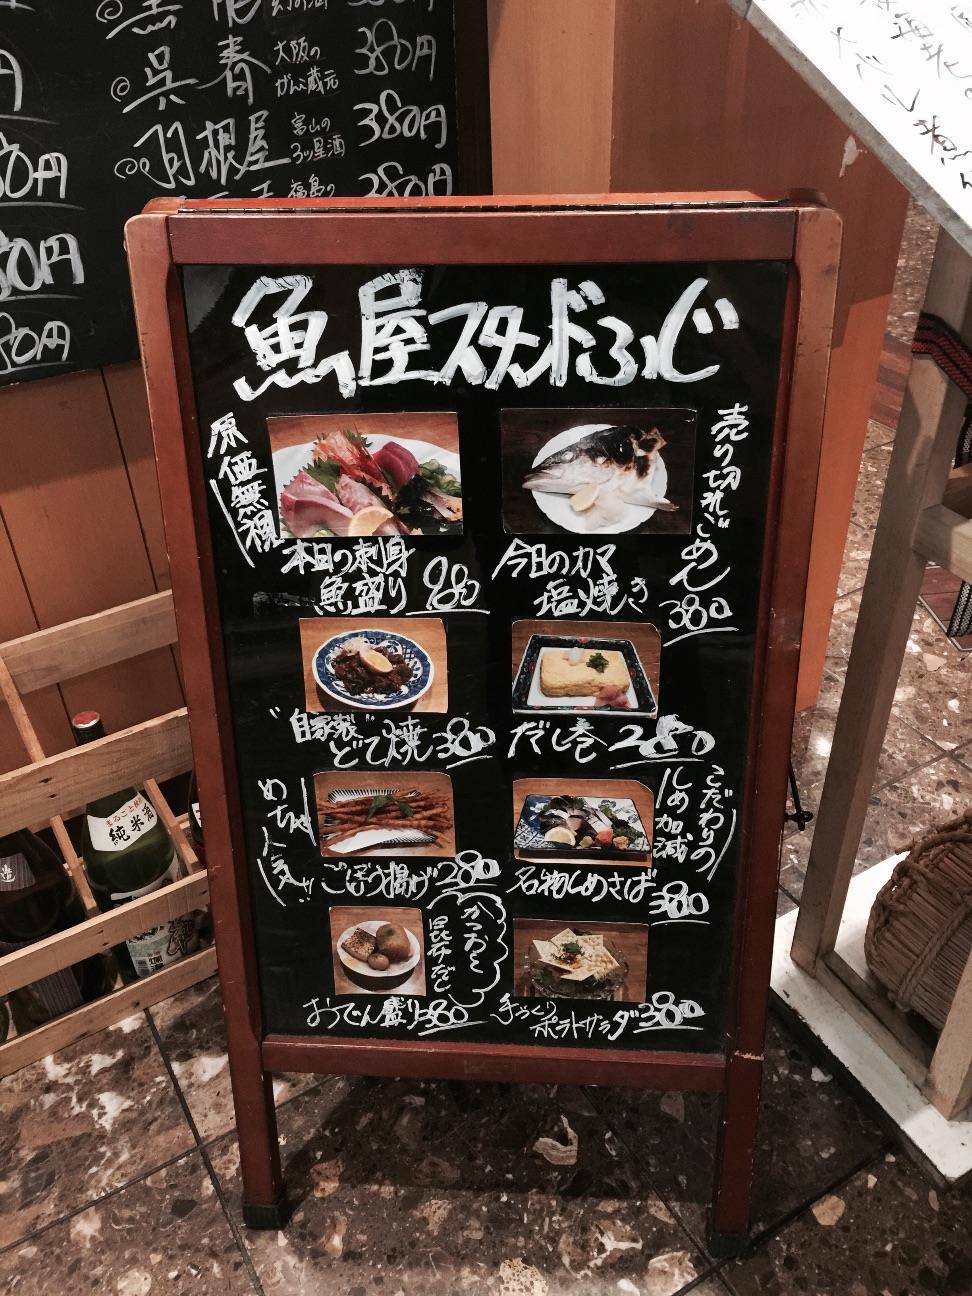 呉春
大阪の
がんこ蔵元
380円
羽根屋
富山の
380円
福島の
380円
80円
魚屋スタンドふじ
原価無視
本日の刺身
魚盛り 980
売り切れごめん
今日のカマ
塩焼き
380
"自家製"
どて焼 380
だし巻 280
めちゃ人気!!
ごぼう揚げ 280
こだわりの
しめ加減
名物しめさば 380
かつおと
昆布だし
おでん盛り 380
手づくり
ポテトサラダ 380
まるごと
純米酒